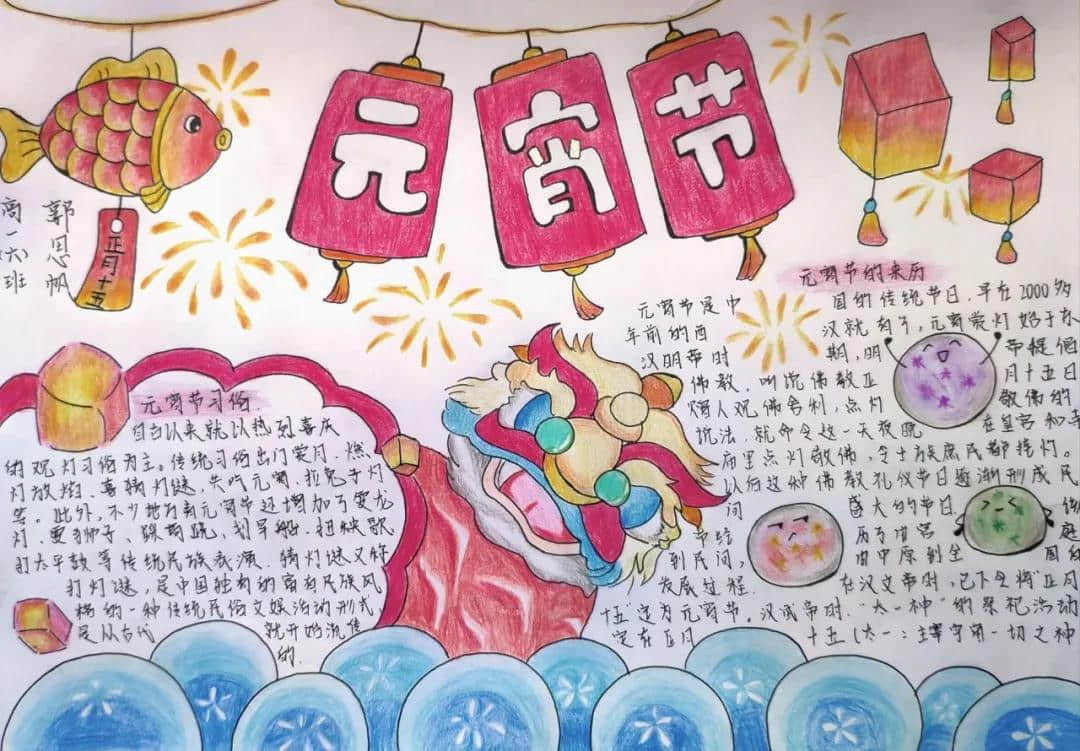 元宵节
正月十五
高一(六)班
郭恩帆
元宵节习俗.
自古以来就以热烈喜庆
的观灯习俗为主。传统习俗出门赏月、燃
灯放焰、喜猜灯谜、共吃元宵、拉兔子灯
等。此外,不少地方 元宵节还增加了耍龙
灯、耍狮子、踩高跷、划旱船、扭秧歌
打太平鼓等传统民族表演。猜灯谜又称
打灯谜,是中国独有的富有民族风
格的一种传统民俗文娱活动形式,
是从古代 就开始流传
的.
元宵节的来历
元宵节是中 国的传统节日,早在2000多
年前的西 汉就有了,元宵赏灯始于东
汉明帝时 期,明 帝提倡
佛教,听说佛教正 月十五日
僧人观佛舍利,点灯 敬佛的
说法,就命令这一天夜晚 在皇宫和寺
庙里点灯敬佛,令士族庶民都挂灯。
以后这种佛教礼仪节日逐渐形成民
间 盛大的节日.
节经 历了由宫 庭
到民间, 由中原到全 国的
发展过程. 在汉文帝时,已下令将"正月
十五"定为元宵节。汉武帝时."太一神"的祭祀活动
定在正月 十五(太一:主宰宇宙一切之神